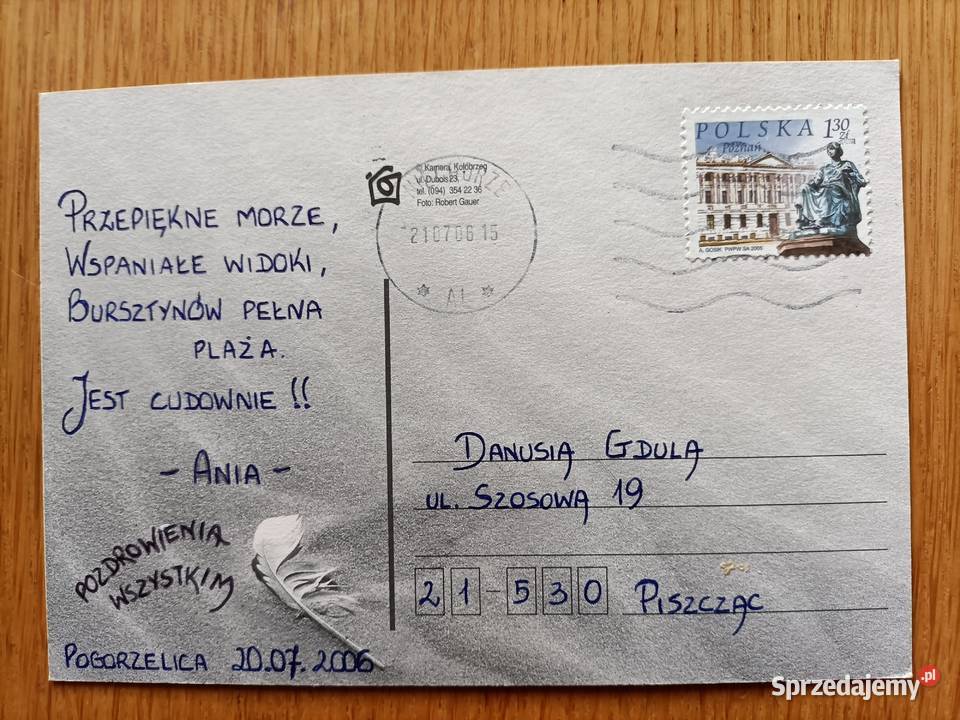 PRZEPIĘKNE MORZE,
WSPANIAŁE WIDOKI,
BURSZTYNÓW PEŁNA
PLAŻA.
JEST CUDOWNIE !!
- ANIA -
POZDROWIENIA
WSZYSTKIM
POGORZELICA 20.07.2006
© Kamera, Kołobrzeg
ul. Dubois 23,
tel. (094) 354 22 36
Foto: Robert Gauer
21 07 06 15
A1
POLSKA 1,30
ZŁ
Poznań
A. GOSIK PWPW SA 2005
DANUSIA GDULA
UL. SZOSOWA 19
21-530 PISZCZAC
Sprzedajemy.pl